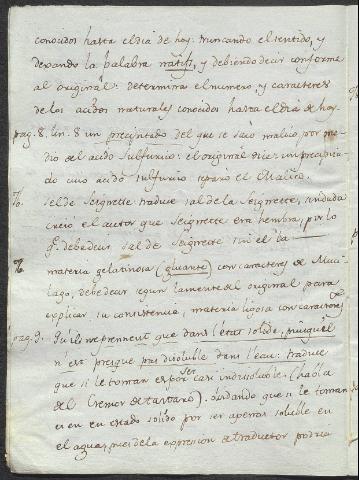 conocidos hasta el dia de hoy. truncando el sentido, y
dexando la palabra natifs, y debiendo decir conforme
al original: determina el numero, y caracteres
de los acidos naturales conocidos hasta el dia de hoy.
pag. 8. lin. 8 un precipitado del que se sacò malico, por me
dio del acido sulfurico: el original dice: un precipita
do cuio acido sulfurico separò el Malico.
Sel de Seignette traduce sal de la Seignette, sin duda
creiò el autor que Seignette era hembra, por lo
q.e debe decir sal de Seignette sin el la
materia gelatinosa (gluante) con caracteres de Muci
lago, debe decir segun la mente del original para
explicar su consistencia, materia ligosa con caracteres
pag. 9. Qu'ils ne prennent que dans l'état solide, puisqu'il
n'est presque pas disoluble dans l'eau: traduce
que si le toman es por ser casi indisoluble (habla
del Cremor de tartaro). dudando que si le toman
es en estado solido por ser apenas soluble en
el agua, pues de la expresion del traductor podria